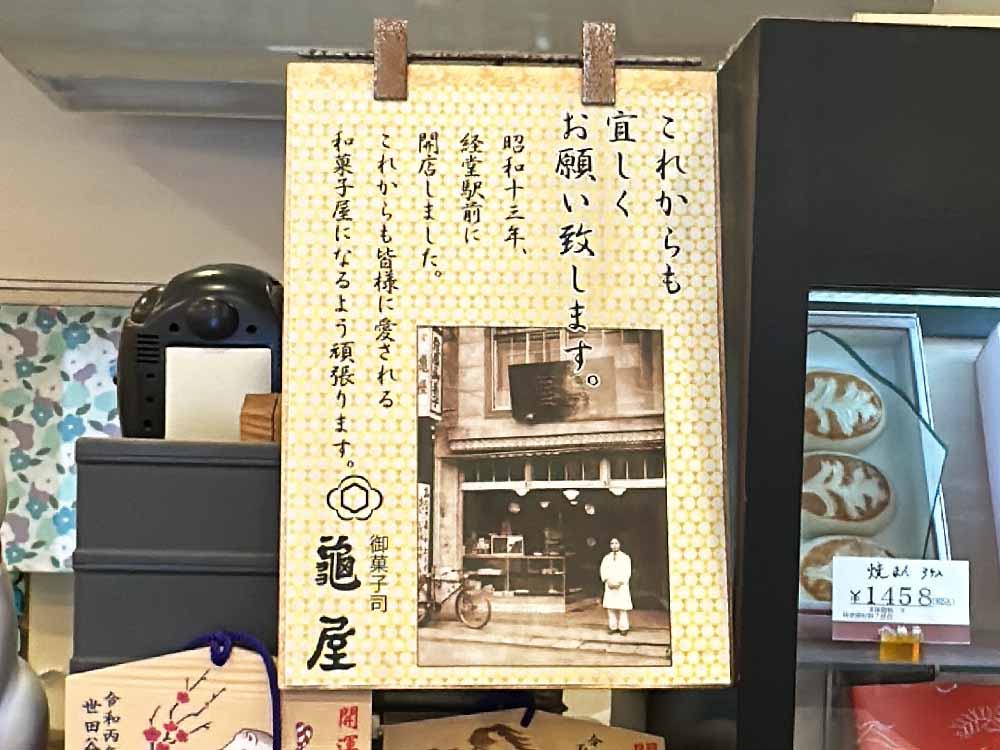 これからも
宜しく
お願い致します。
昭和十三年、
経堂駅前に
開店しました。
これからも皆様に愛される
和菓子屋になるよう頑張ります。
御菓子司
龜屋
焼まん 3ケ入
¥1458(税込)
令和丙
世田谷
開運